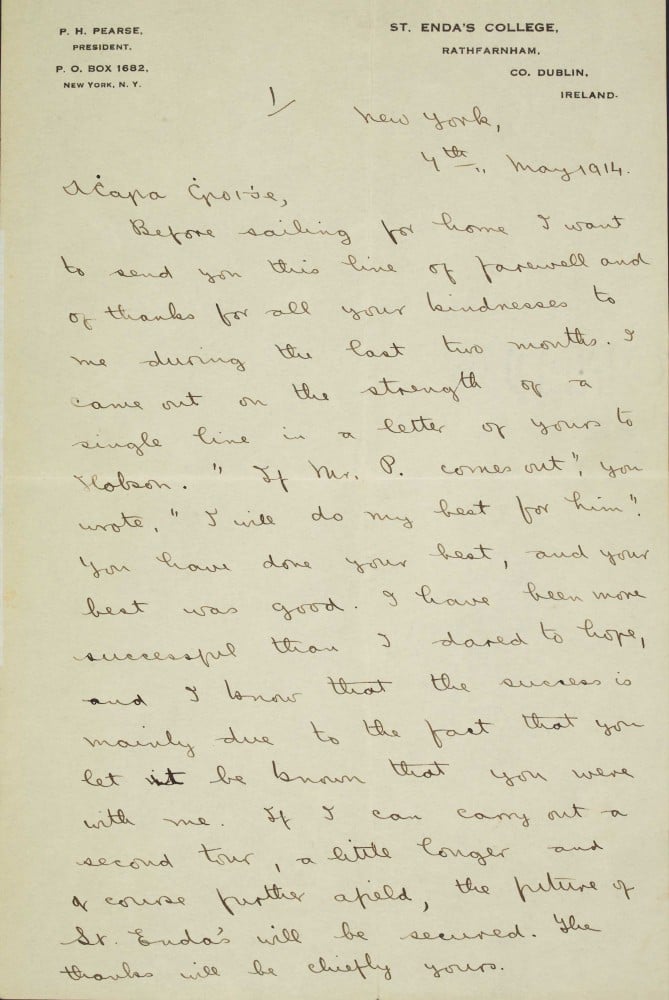 P. H. PEARSE,
PRESIDENT.
P. O. BOX 1682,
NEW YORK, N. Y.
ST. ENDA'S COLLEGE,
RATHFARNHAM,
CO. DUBLIN,
IRELAND.
1/
New York,
4th May 1914.
A Ċara Ċroiḋe,
Before sailing for home I want
to send you this line of farewell and
of thanks for all your kindnesses to
me during the last two months. I
came out on the strength of a
single line in a letter of yours to
Hobson. "If Mr. P. comes out", you
wrote, "I will do my best for him".
You have done your best, and your
best was good. I have been more
successful than I dared to hope,
and I know that the success is
mainly due to the fact that you
let it be known that you were
with me. If I can carry out a
second tour, a little longer and
of course further afield, the future of
St. Enda's will be secured. The
thanks will be chiefly yours.